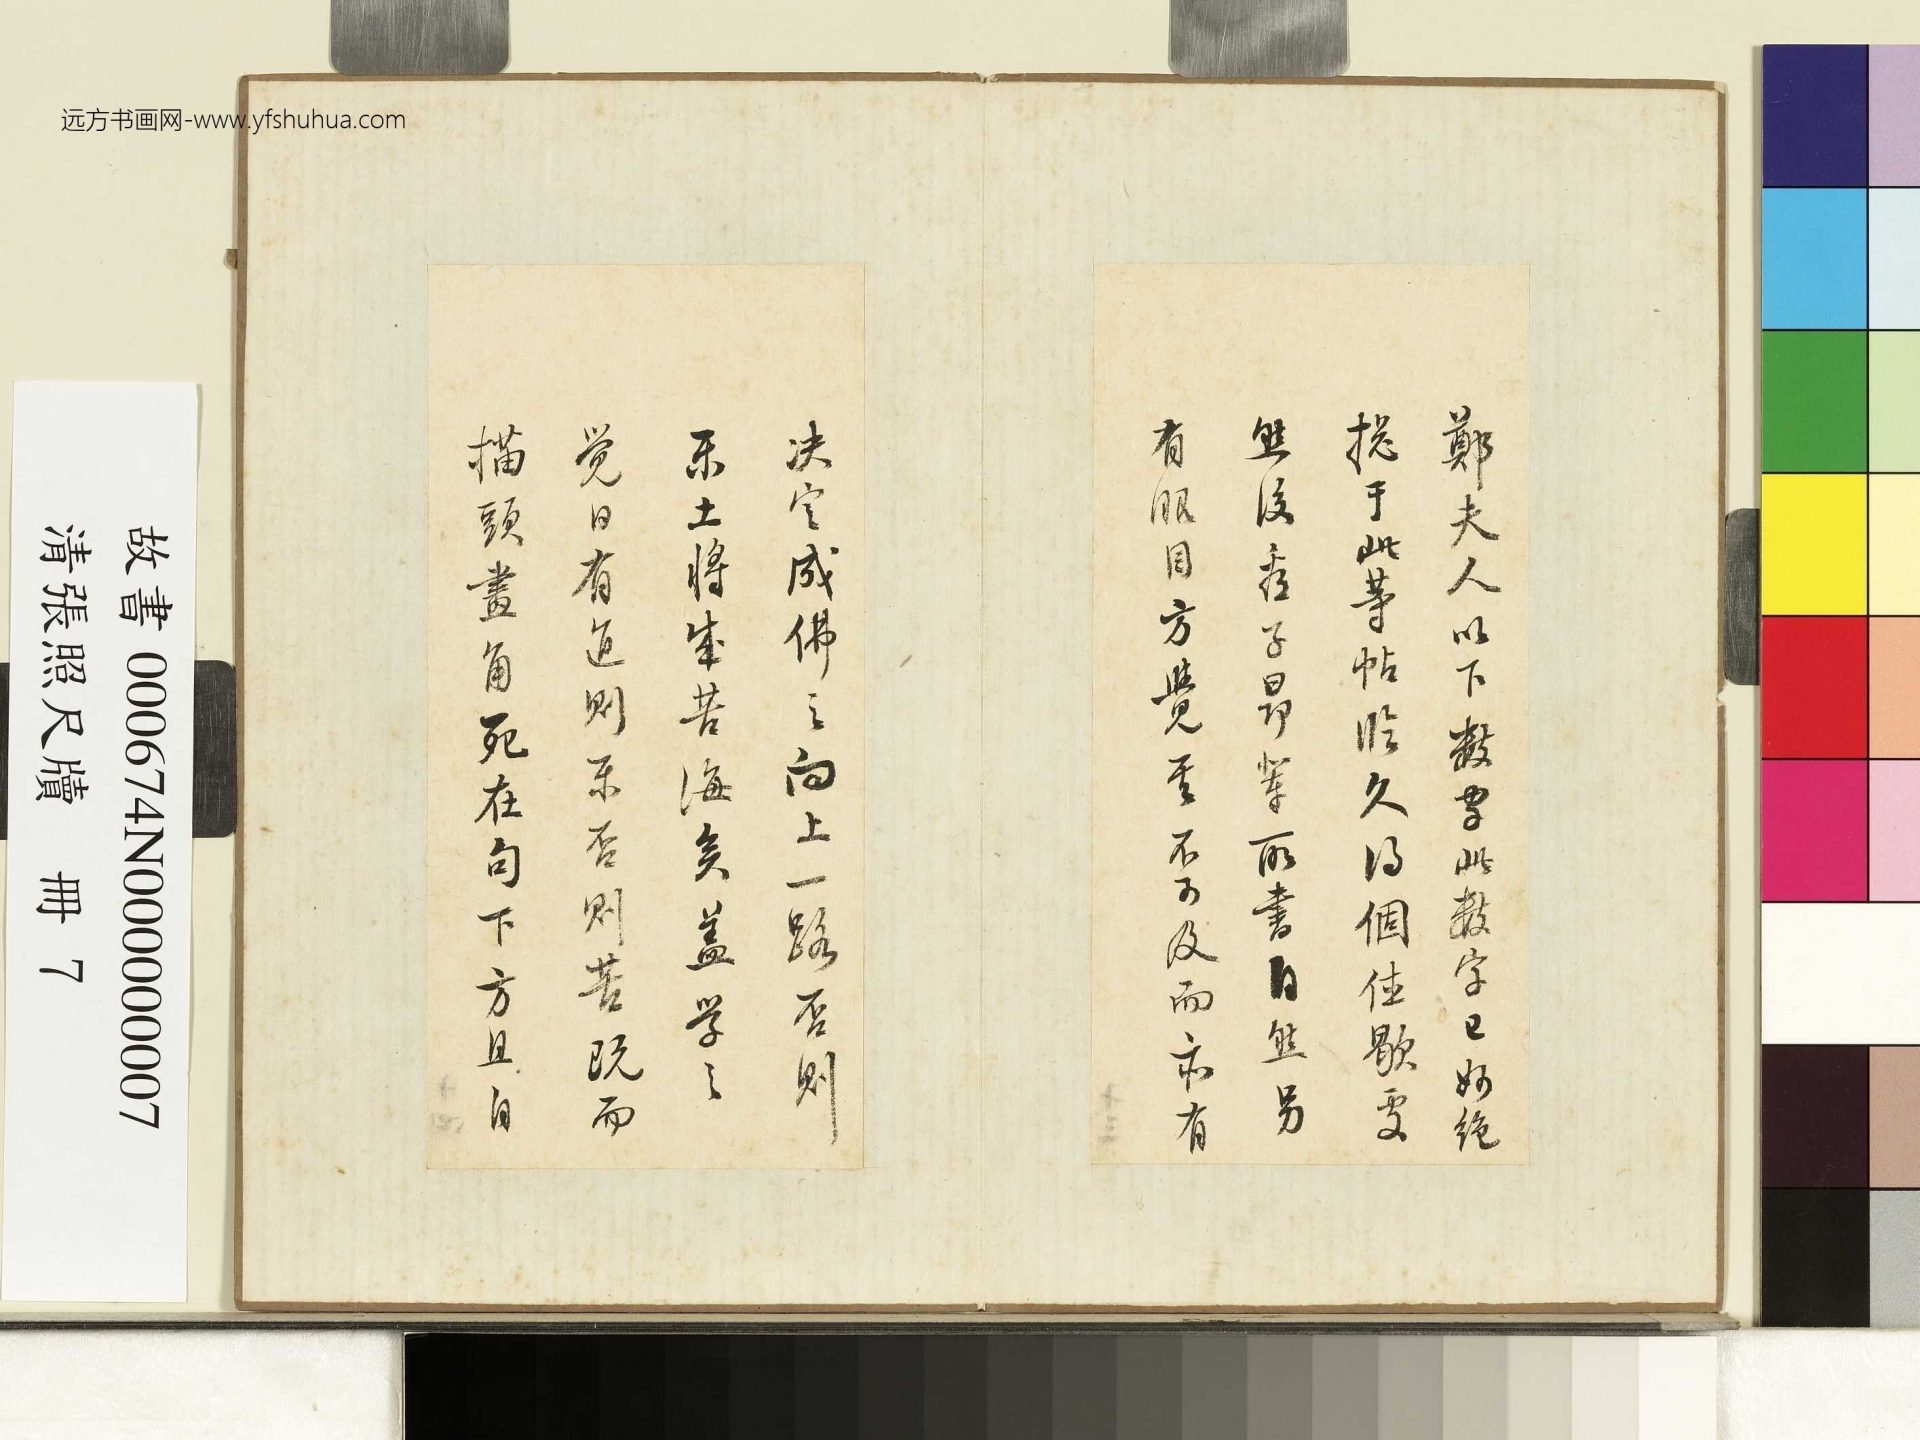 远方书画网-www.yfshuhua.com
鄭夫人以下數字此數字已妙絶
撹于此等帖臨久得個佳歇処
然後看子昂輩所書自然另
有眼目方覺其不可及而亦有
决定成佛之向上一路否則
乐土將成苦海矣盖学之
觉日有近則乐否則苦既而
描頭畫角死在句下方且自
十三
十四
故書 000674N000000007
清張照尺牘 冊 7